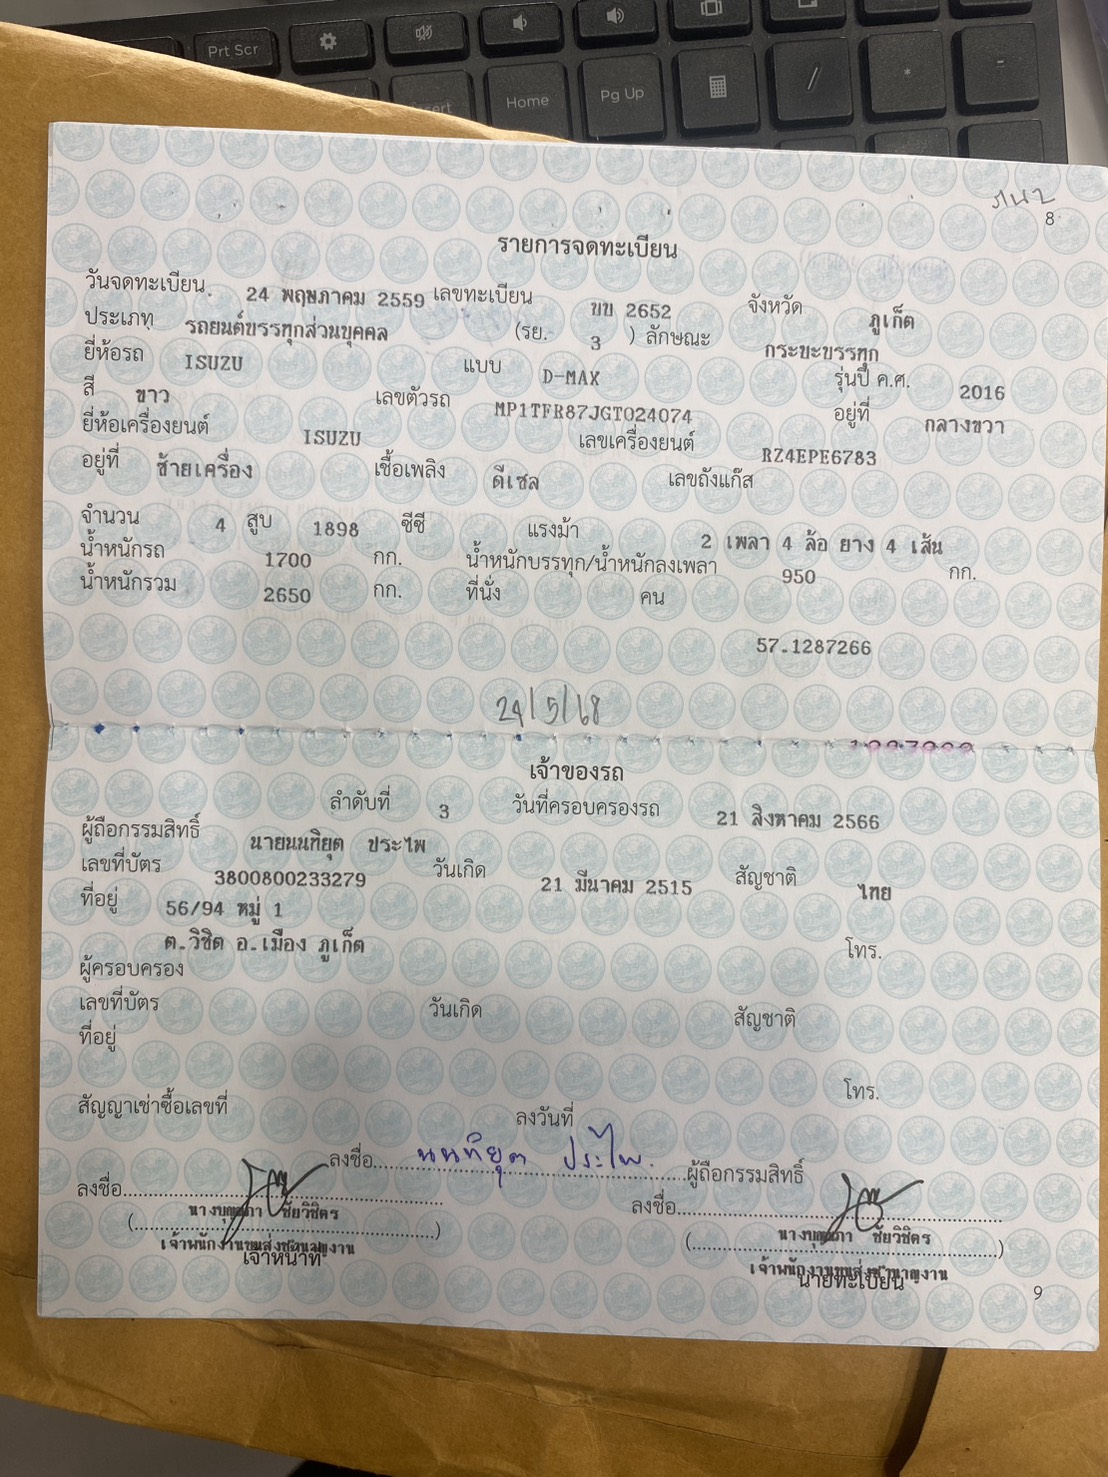 Prt Scr
Insert
Home
Pg Up
/
*
-
ภน2
8
รายการจดทะเบียน
วันจดทะเบียน 24 พฤษภาคม 2559 เลขทะเบียน ขบ 2652 จังหวัด ภูเก็ต
ประเภท รถยนต์บรรทุกส่วนบุคคล (รย. 3 ) ลักษณะ กระบะบรรทุก
ยี่ห้อรถ ISUZU แบบ D-MAX รุ่นปี ค.ศ. 2016
สี ขาว เลขตัวรถ MP1TFR87JGT024074 อยู่ที่ กลางขวา
ยี่ห้อเครื่องยนต์ ISUZU เลขเครื่องยนต์ RZ4EPE6783
อยู่ที่ ซ้ายเครื่อง เชื้อเพลิง ดีเซล เลขถังแก๊ส
จำนวน 4 สูบ 1898 ซีซี แรงม้า 2 เพลา 4 ล้อ ยาง 4 เส้น
น้ำหนักรถ 1700 กก. น้ำหนักบรรทุก/น้ำหนักลงเพลา 950 กก.
น้ำหนักรวม 2650 กก. ที่นั่ง คน
57-1287266
24/5/68
เจ้าของรถ
ลำดับที่ 3 วันที่ครอบครองรถ 21 สิงหาคม 2566
ผู้ถือกรรมสิทธิ์ นายนนทิยุต ประะไพ
เลขที่บัตร 3800800233279 วันเกิด 21 มีนาคม 2515 สัญชาติ ไทย
ที่อยู่ 56/94 หมู่ 1
ต.วิชิต อ.เมือง ภูเก็ต โทร.
ผู้ครอบครอง
เลขที่บัตร วันเกิด สัญชาติ
ที่อยู่
โทร.
สัญญาเช่าซื้อเลขที่ ลงวันที่
ลงชื่อ นนทิยุต ประไพ ผู้ถือกรรมสิทธิ์
ลงชื่อ ลงชื่อ
ชัยวิชิตร ชัยวิชิตร
เจ้าหน้าที่ นายทะเบียน
9